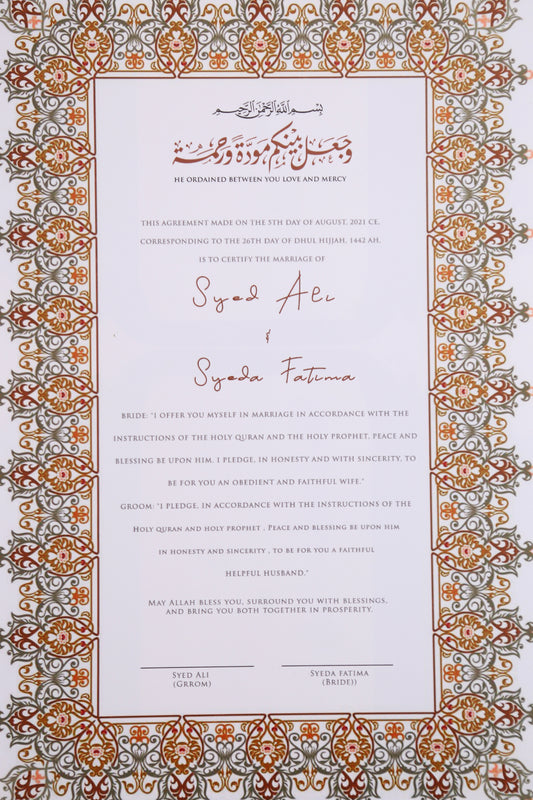 بِسْمِ اللَّهِ الرَّحْمَٰنِ الرَّحِيمِ
وَجَعَلَ بَيْنَكُم مَّوَدَّةً وَرَحْمَةً
HE ORDAINED BETWEEN YOU LOVE AND MERCY
THIS AGREEMENT MADE ON THE 5TH DAY OF AUGUST, 2021 CE,
CORRESPONDING TO THE 26TH DAY OF DHUL HIJJAH, 1442 AH,
IS TO CERTIFY THE MARRIAGE OF
Syed Ali
&
Syeda Fatima
BRIDE: "I OFFER YOU MYSELF IN MARRIAGE IN ACCORDANCE WITH THE
INSTRUCTIONS OF THE HOLY QURAN AND THE HOLY PROPHET, PEACE AND
BLESSING BE UPON HIM. I PLEDGE, IN HONESTY AND WITH SINCERITY, TO
BE FOR YOU AN OBEDIENT AND FAITHFUL WIFE."
GROOM: "I PLEDGE, IN ACCORDANCE WITH THE INSTRUCTIONS OF THE
HOLY QURAN AND HOLY PROPHET , PEACE AND BLESSING BE UPON HIM
IN HONESTY AND SINCERITY , TO BE FOR YOU A FAITHFUL
HELPFUL HUSBAND."
MAY ALLAH BLESS YOU, SURROUND YOU WITH BLESSINGS,
AND BRING YOU BOTH TOGETHER IN PROSPERITY.
SYED ALI
(GRROM)
SYEDA FATIMA
(BRIDE))